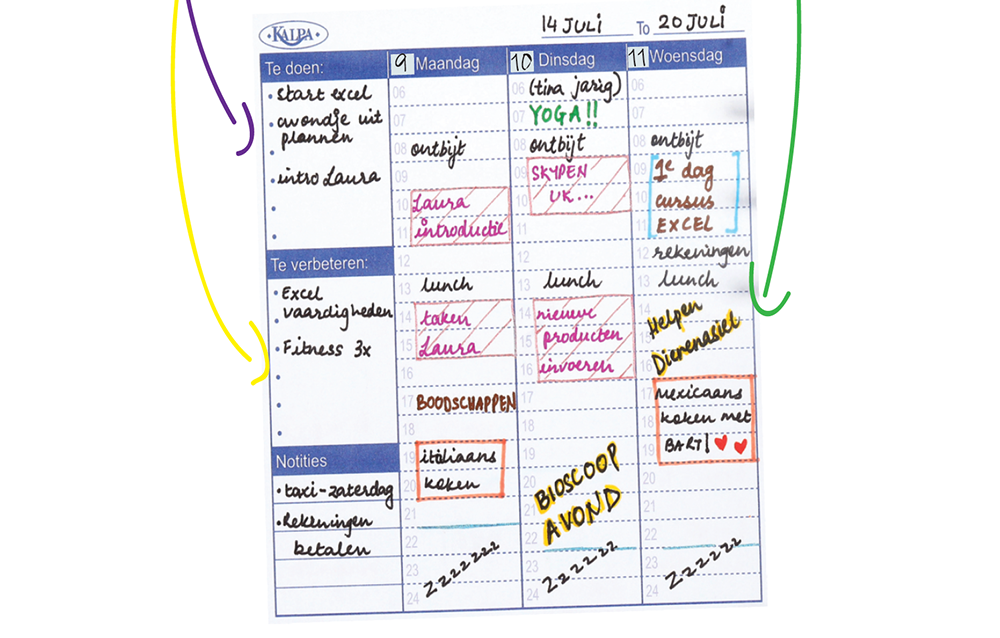 KALPA
14 JULI To 20 JULI
Te doen:
• start excel
• avondje uit
plannen
•
• intro Laura
•
•
Te verbeteren:
• Excel
vaardigheden
• Fitness 3x
•
•
•
Notities
• taxi-zaterdag
• Rekeningen
betalen
9 Maandag
06
07
08 ontbijt
09
10 Laura
11 introductie
12
13 lunch
14 taken
15 Laura
16
17 BOODSCHAPPEN
18
19 italiaans
20 koken
21
22
23 Zzzzzzz
24
10 Dinsdag
06 (tina jarig)
07 YOGA!!
08 ontbijt
09 SKYPEN
10 UK...
11
12
13 lunch
14 nieuwe
15 producten
16 invoeren
17
18
19
20 BIOSCOOP
21 AVOND
22
23 Zzzzzzz
24
11 Woensdag
06
07
08 ontbijt
09 1e dag
10 cursus
11 EXCEL
12 rekeningen
13 lunch
14 Helpen
15 Dierenasiel
16
17 mexicaans
18 koken met
19 BART! ♥ ♥
20
21
22
23 Zzzzzzz
24